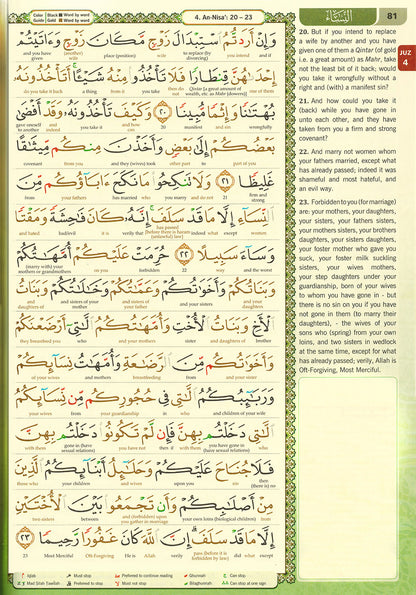 Color Black Word by word
Guide Gold Word by word
4. An-Nisa': 20 – 23
النِّسَاء
81
JUZ 4
وَإِنْ أَرَدتُّمُ ٱسْتِبْدَالَ زَوْجٍ مَّكَانَ زَوْجٍ وَءَاتَيْتُمْ
and you have given wife place (position) wife to replace (by divorcing) you intend and if
إِحْدَىٰهُنَّ قِنطَارًا فَلَا تَأْخُذُوا۟ مِنْهُ شَيْـًٔا أَتَأْخُذُونَهُۥ
do you take it back a thing from it you take then do not Qintar [a great amount of wealth, etc. as Mahr (dowery)] one of them
بُهْتَـٰنًا وَإِثْمًا مُّبِينًا ٢٠ وَكَيْفَ تَأْخُذُونَهُۥ وَقَدْ أَفْضَىٰ
gave oneself to another indeed you take it and how 20 manifest and sin wrongfully
بَعْضُكُمْ إِلَىٰ بَعْضٍ وَأَخَذْنَ مِنكُم مِّيثَـٰقًا
covenant from you and they (wives) took other part to part of you
غَلِيظًا ٢١ وَلَا تَنكِحُوا۟ مَا نَكَحَ ءَابَآؤُكُم مِّنَ
from your fathers has married who you marry and do not 21
ٱلنِّسَآءِ إِلَّا مَا قَدْ سَلَفَ إِنَّهُۥ كَانَ فَـٰحِشَةً وَمَقْتًا
and hated is verily it has passed (before there is haram (unlawful) law) indeed what except women
وَسَآءَ سَبِيلًا ٢٢ حُرِّمَتْ عَلَيْكُمْ أُمَّهَـٰتُكُمْ
(marry with) your mothers or grandmothers on you forbidden 22 way and the worst
وَبَنَاتُكُمْ وَأَخَوَٰتُكُمْ وَعَمَّـٰتُكُمْ وَخَـٰلَـٰتُكُمْ وَبَنَاتُ
and daughters of and sisters of your mothers and sisters of your father and your sisters and your daughters
ٱلْأَخِ وَبَنَاتُ ٱلْأُخْتِ وَأُمَّهَـٰتُكُمُ ٱلَّـٰتِىٓ أَرْضَعْنَكُمْ
they breastfeed you who and mothers sister and daughters of brother
وَأَخَوَٰتُكُم مِّنَ ٱلرَّضَـٰعَةِ وَأُمَّهَـٰتُ نِسَآئِكُمْ
of your wives and mothers breastfeeding from and your sisters
وَرَبَـٰٓئِبُكُمُ ٱلَّـٰتِى فِى حُجُورِكُم مِّن نِّسَآئِكُمُ
your wives from your guardianship in who and children of your wife
ٱلَّـٰتِى دَخَلْتُم بِهِنَّ فَإِن لَّمْ تَكُونُوا۟ دَخَلْتُم بِهِنَّ
with them gone in (have sexual relations) you have not then if with them you have gone in (have sexual relations) who
فَلَا جُنَاحَ عَلَيْكُمْ وَحَلَـٰٓئِلُ أَبْنَآئِكُمُ ٱلَّذِينَ
those who your children and wives upon you sin then (there is) no
مِنْ أَصْلَـٰبِكُمْ وَأَن تَجْمَعُوا۟ بَيْنَ ٱلْأُخْتَيْنِ
two sisters between you gather in marriage and (forbidden) upon your own loins (biological children) from
إِلَّا مَا قَدْ سَلَفَ إِنَّ ٱللَّهَ كَانَ غَفُورًا رَّحِيمًا ٢٣
23 Most Merciful Oft-Forgiving He is Allah verily pass (before it is forbidden by law) did what except
Must stop
Preferred to continue reading
Ghunnah
Can stop
Mad Silah Tawilah
Preferred to stop
Must not stop
Bilaghunnah
Can stop at one sign
20. But if you intend to replace
a wife by another and you have
given one of them a Qintar (of gold
i.e. a great amount) as Mahr, take
not the least bit of it back; would
you take it wrongfully without a
right and (with) a manifest sin?
21. And how could you take it
(back) while you have gone in
unto each other, and they have
taken from you a firm and strong
covenant?
22. And marry not women whom
your fathers married, except what
has already passed; indeed it was
shameful and most hateful, and
an evil way.
23. Forbidden to you (for marriage)
are: your mothers, your daughters,
your sisters, your fathers sisters,
your mothers sisters, your brothers
daughters, your sisters daughters,
your foster mother who gave you
suck, your foster milk suckling
sisters, your wives mothers,
your step daughters under your
guardianship, born of your wives
to whom you have gone in - but
there is no sin on you if you have
not gone in them (to marry their
daughters), - the wives of your
sons who (spring) from your own
loins, and two sisters in wedlock
at the same time, except for what
has already passed; verily, Allah is
Oft-Forgiving, Most Merciful.